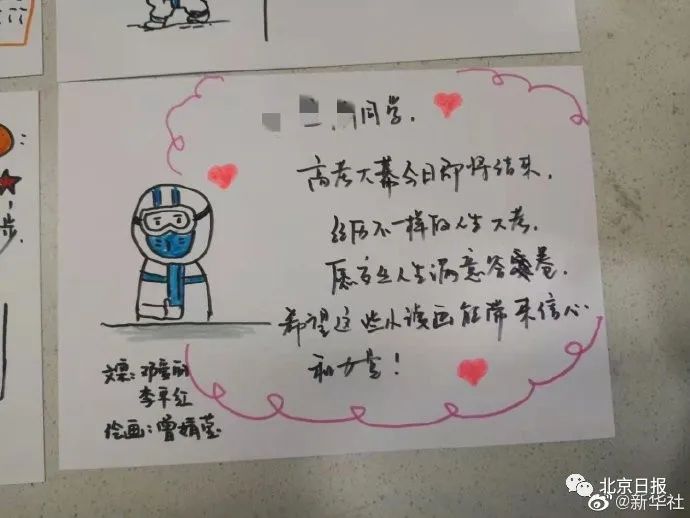 同学,
高考大幕今日即将结束,
经历不一样的人生大考,
愿交出人生满意答卷,
希望这些小漫画能带来信心
和力量!
文案:邓雪丽
李平红
绘画:曾婧莹
步.
北京日报
@新华社